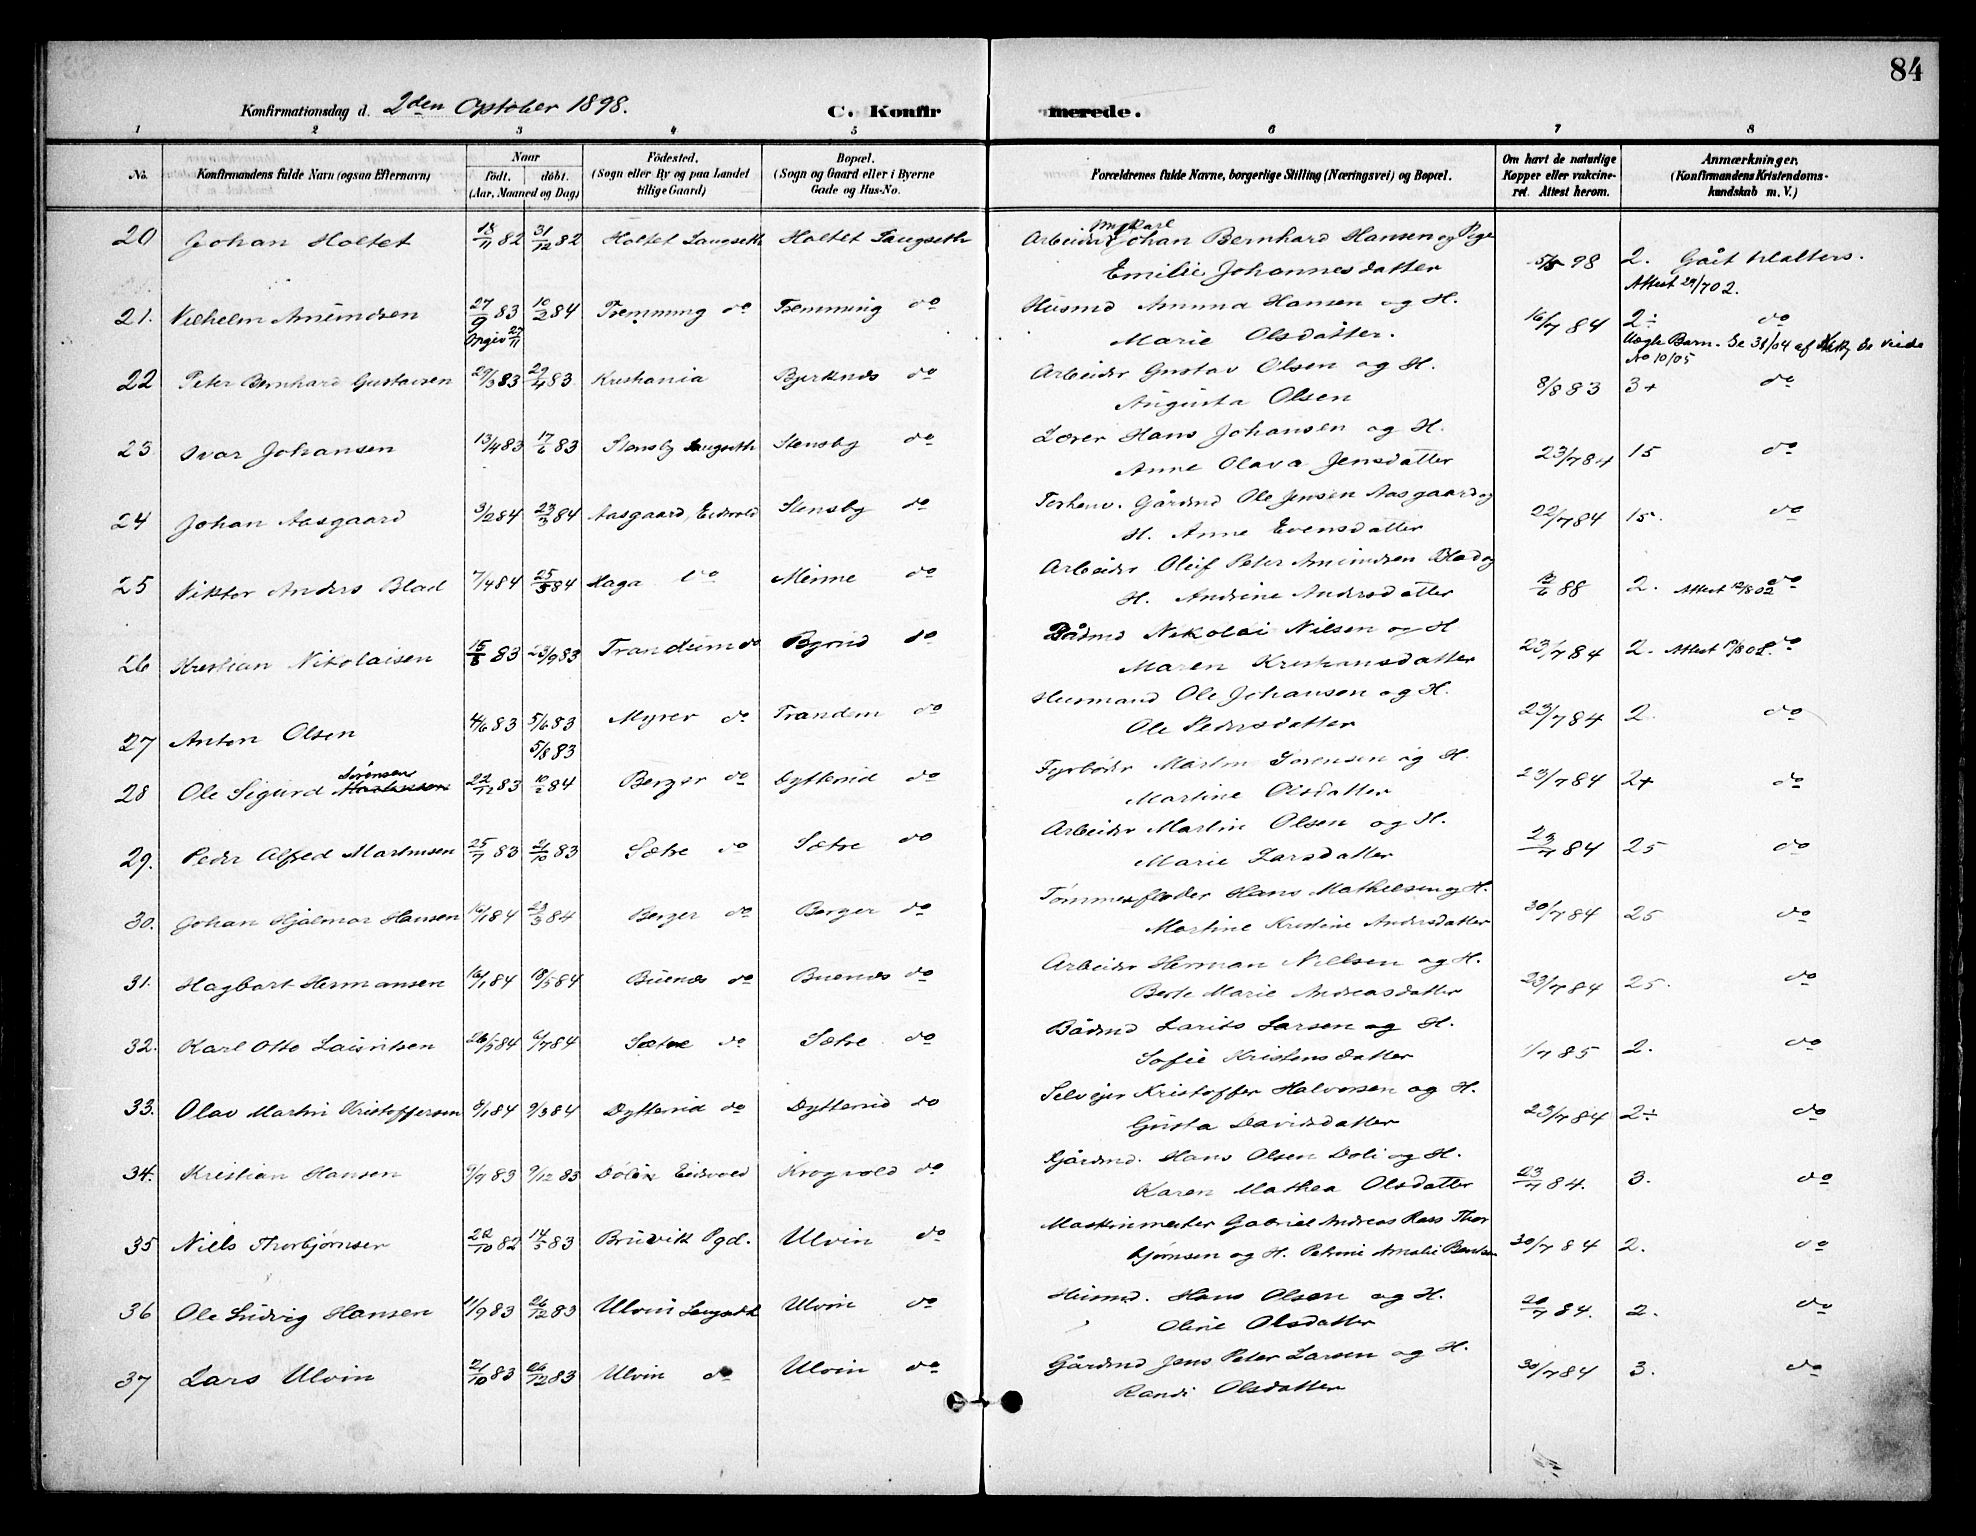 84
Konfirmationsdag d. 2den October 1898. C. Konfirmerede.
1 2 3 4 5 6 7 8
No. Konfirmandens fulde Navn (ogsaa Efternavn) Naar født. døbt. (Aar, Maaned og Dag) Fødested. (Sogn eller By og paa Landet tillige Gaard) Bopæl. (Sogn og Gaard eller i Byerne Gade og Hus-No. Forældrenes fulde Navne, borgerlige Stilling (Næringsvei) og Bopæl. Om havt de naturlige Kopper eller vakcineret. Attest herom. Anmærkninger. (Konfirmandens Kristendomskundskab m. V.)
20 Johan Holtet 18/11 82 31/12 82 Holtet Langseth Holtet Langseth Arbeider Johan Bernhard Hansen og Pige
Emilie Johannesdatter 5/5 98 2. Gåit t. alters.
Attest 29/7 02.
21. Vilhelm Amundsen 27/9 83 10/2 84 Tremming do Tremming do Husmd Amund Hansen og H.
Marie Olsdatter. 16/7 84 2÷ do
Opgiv 27/11
Uægte Barn. Se 31/04
No 10/05
22 Peter Bernhard Gustavsen 29/3 83 29/4 83 Kristiania Bjerknes do Arbeider Gustav Olsen og H.
Augusta Olsen 8/8 83 3+ do
23 Ivar Johansen 13/4 83 17/6 83 Stensby Langseth Stensby do Lærer Hans Johansen og H.
Anne Olava Jensdatter 23/7 84 15 do
24 Johan Aasgaard 3/2 84 23/3 84 Aasgaard, Eidsvold Stensby do Forhenv. Gårdmd Ole Jensen Aasgaard og
H. Anne Evensdatter 22/7 84 15. do
25 Viktor Anders Blad 7/4 84 25/5 84 Haga do Minne do Arbeider Oluf Peter Amundsen Blad og
H. Andrine Andersdatter 12/6 88 2. Attest 12/8 02 do
26 Kristian Nikolaisen 15/8 83 23/9 83 Trandum do Byrud do Bådmd Nikolai Nilsen og H
Maren Kristiansdatter 23/7 84 2. Attest do
27 Anton Olsen 4/6 83 5/6 83 Myrer do Trandem do Husmand Ole Johansen og H.
Ole Pedersdatter 23/7 84 2. do
5/8 83
28 Ole Sigurd Sørensen 22/12 83 10/2 84 Berger do Dytterud do Fyrbøder Martin Sørensen og H.
Martine Olsdatter 23/7 84 2+ do
29. Peder Alfred Martinsen 25/7 83 21/10 83 Sætre do Sætre do Arbeider Martin Olsen og H.
Marie Larsdatter 23/7 84 25 do
30. Johan Hjalmar Hansen 16/1 84 23/3 84 Berger do Berger do Tømmerfløder Hans Mathisen og H.
Martine Kristine Andersdatter 30/7 84 25 do
31. Hagbart Hermansen 16/1 84 18/5 84 Buenes do Buenes do Arbeider Herman Nielsen og H.
Berte Marie Andreasdatter 23/7 84 25. do
32. Karl Otto Lauritsen 26/5 84 6/7 84 Sætre do Sætre do Bådmd Larits Larsen og H.
Sofie Kristensdatter 1/7 85 2. do
33. Olav Martin Kristoffersen 8/1 84 9/3 84 Dytterud do Dytterud do Selveier Kristoffer Halvorsen og H.
Gusta Davidsdatter 23/7 84 2÷ do
34. Kristian Hansen 9/7 83 9/12 83 Dølin Eidsvold Krogvold do Gårdmd. Hans Olsen Doli og H.
Karen Mathea Olsdatter 23/7 84. 3. do
35 Niels Thorbjørnsen 22/10 82 14/5 83 Bruvik Pgd. Ulvin do Maskinmester Gabriel Andreas Ross Thor
bjørnsen og H. Petrine Amalie 30/7 84 2. do
36 Ole Ludvig Hansen 11/9 83 26/12 83 Ulvin Langseth Ulvin do Husmd. Hans Olsen og H.
Oline Olsdatter 20/7 84. 2. do
37 Lars Ulvin 21/10 83 26/12 83 Ulvin do Ulvin do Gårdmd Jens Peter Larsen og H.
Randi Olsdatter 30/7 84 3. do